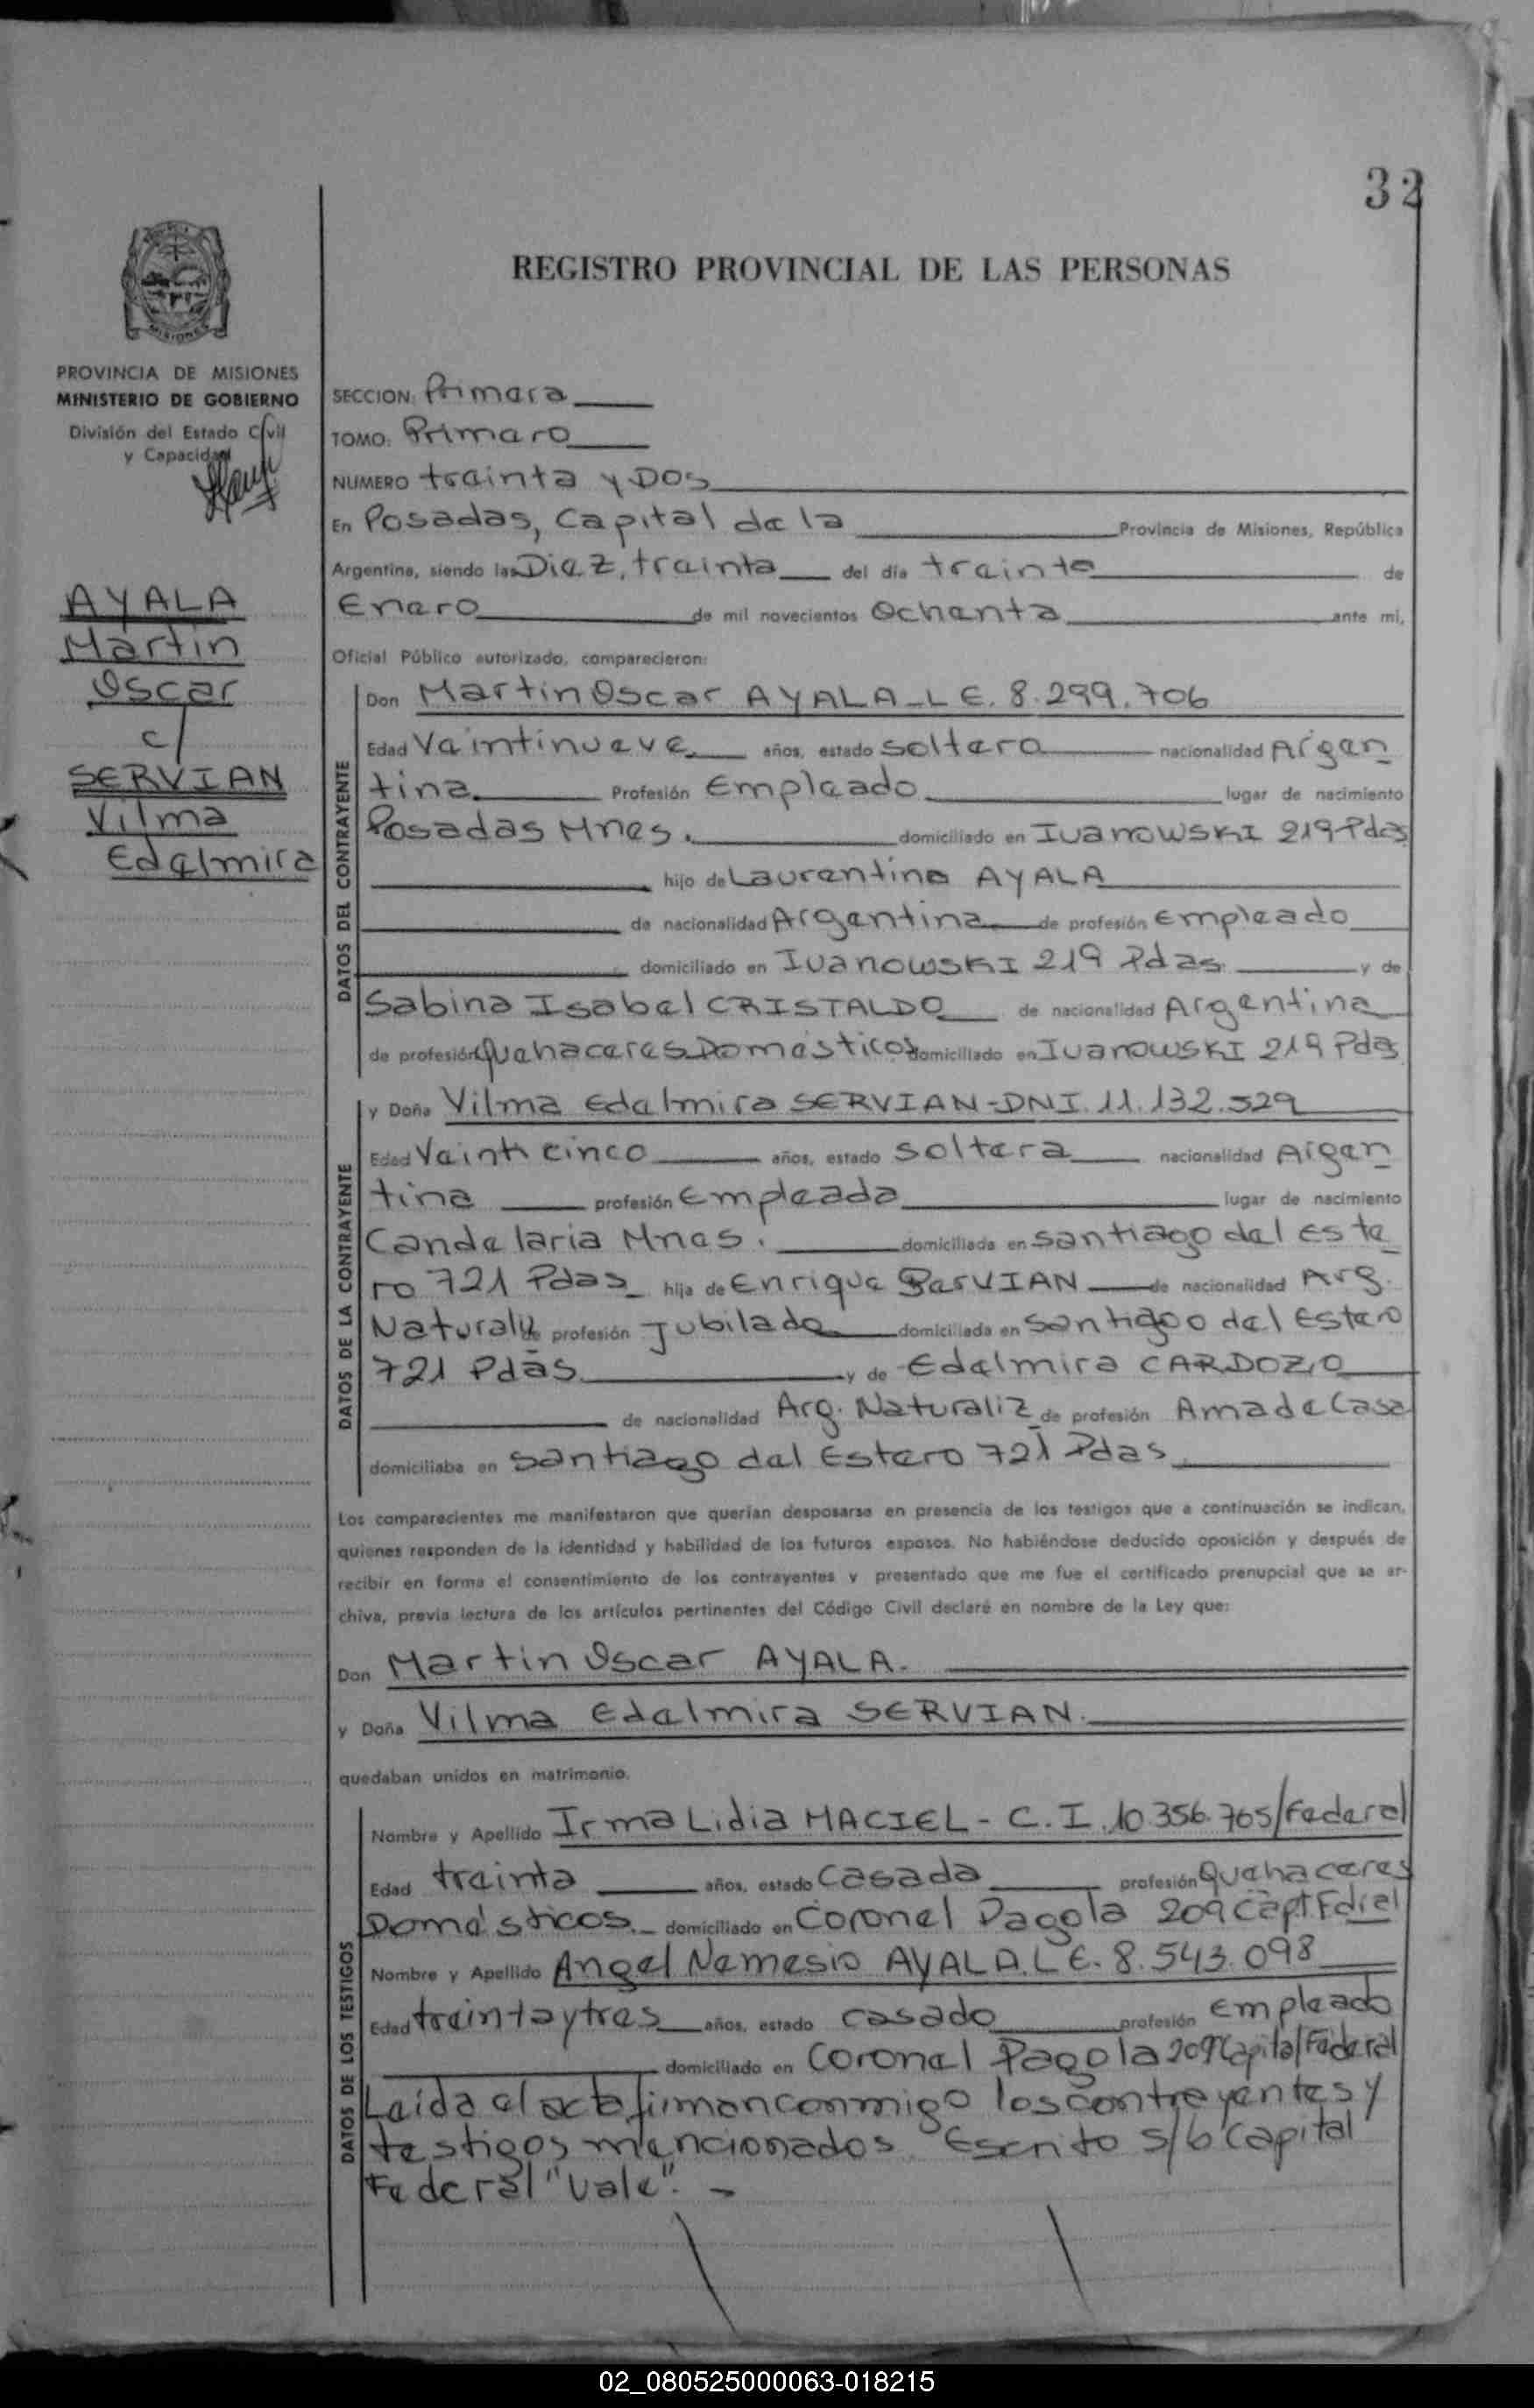 32
REGISTRO PROVINCIAL DE LAS PERSONAS
MISIONES
PROVINCIA DE MISIONES
MINISTERIO DE GOBIERNO
División del Estado Civil
y Capacidad
AYALA
Martin
Oscar
c/
SERVIAN
Vilma
Edelmira
SECCION: Primera
TOMO: Primero
NUMERO treinta y Dos
En Posadas, Capital de la Provincia de Misiones, República
Argentina, siendo las Diez, treinta del día treinta de
Enero de mil novecientos Ochenta ante mi,
Oficial Público autorizado, comparecieron:
DATOS DEL CONTRAYENTE
Don Martin Oscar AYALA - L E. 8.299.706
Edad Veintinueve años, estado soltero nacionalidad Argen
tina Profesión Empleado lugar de nacimiento
Posadas Mnes. domiciliado en IVANOWSKI 219 Pdas
hijo de Laurentino AYALA
de nacionalidad Argentina de profesión Empleado
domiciliado en IVANOWSKI 219 Pdas. y de
Sabina Isabel CRISTALDO de nacionalidad Argentina
de profesión Quehaceres Domésticos domiciliado en IVANOWSKI 219 Pdas
DATOS DE LA CONTRAYENTE
y Doña Vilma Edelmira SERVIAN - DNI. 11.132.529
Edad Veinticinco años, estado soltera nacionalidad Argen
tina profesión Empleada lugar de nacimiento
Candelaria Mnes. domiciliada en Santiago del Este
ro 721 Pdas hija de Enrique SerVIAN de nacionalidad Arg.
Naturaliz de profesión Jubilado domiciliada en Santiago del Estero
721 Pdas. y de Edelmira CARDOZO
de nacionalidad Arg. Naturaliz de profesión Ama de Casa
domiciliaba en Santiago del Estero 721 Pdas
Los comparecientes me manifestaron que querían desposarse en presencia de los testigos que a continuación se indican,
quienes responden de la identidad y habilidad de los futuros esposos. No habiéndose deducido oposición y después de
recibir en forma el consentimiento de los contrayentes y presentado que me fue el certificado prenupcial que se ar-
chiva, previa lectura de los artículos pertinentes del Código Civil declaré en nombre de la Ley que:
Don Martin Oscar AYALA.
y Doña Vilma Edelmira SERVIAN.
quedaban unidos en matrimonio.
DATOS DE LOS TESTIGOS
Nombre y Apellido Irma Lidia MACIEL - C. I. 10.356.765/Federal
Edad treinta años, estado Casada profesión Quehaceres
Domésticos. domiciliado en Coronel Pagola 209 Capt. Fdral
Nombre y Apellido Angel Nemesio AYALA. L E. 8.543.098
Edad treinta y tres años, estado casado profesión Empleado
domiciliado en Coronel Pagola 209 Capital Federal
Leída el acta firman conmigo los contrayentes y
testigos mencionados. Escrito s/b Capital
Federal "Vale". -
02_080525000063-018215